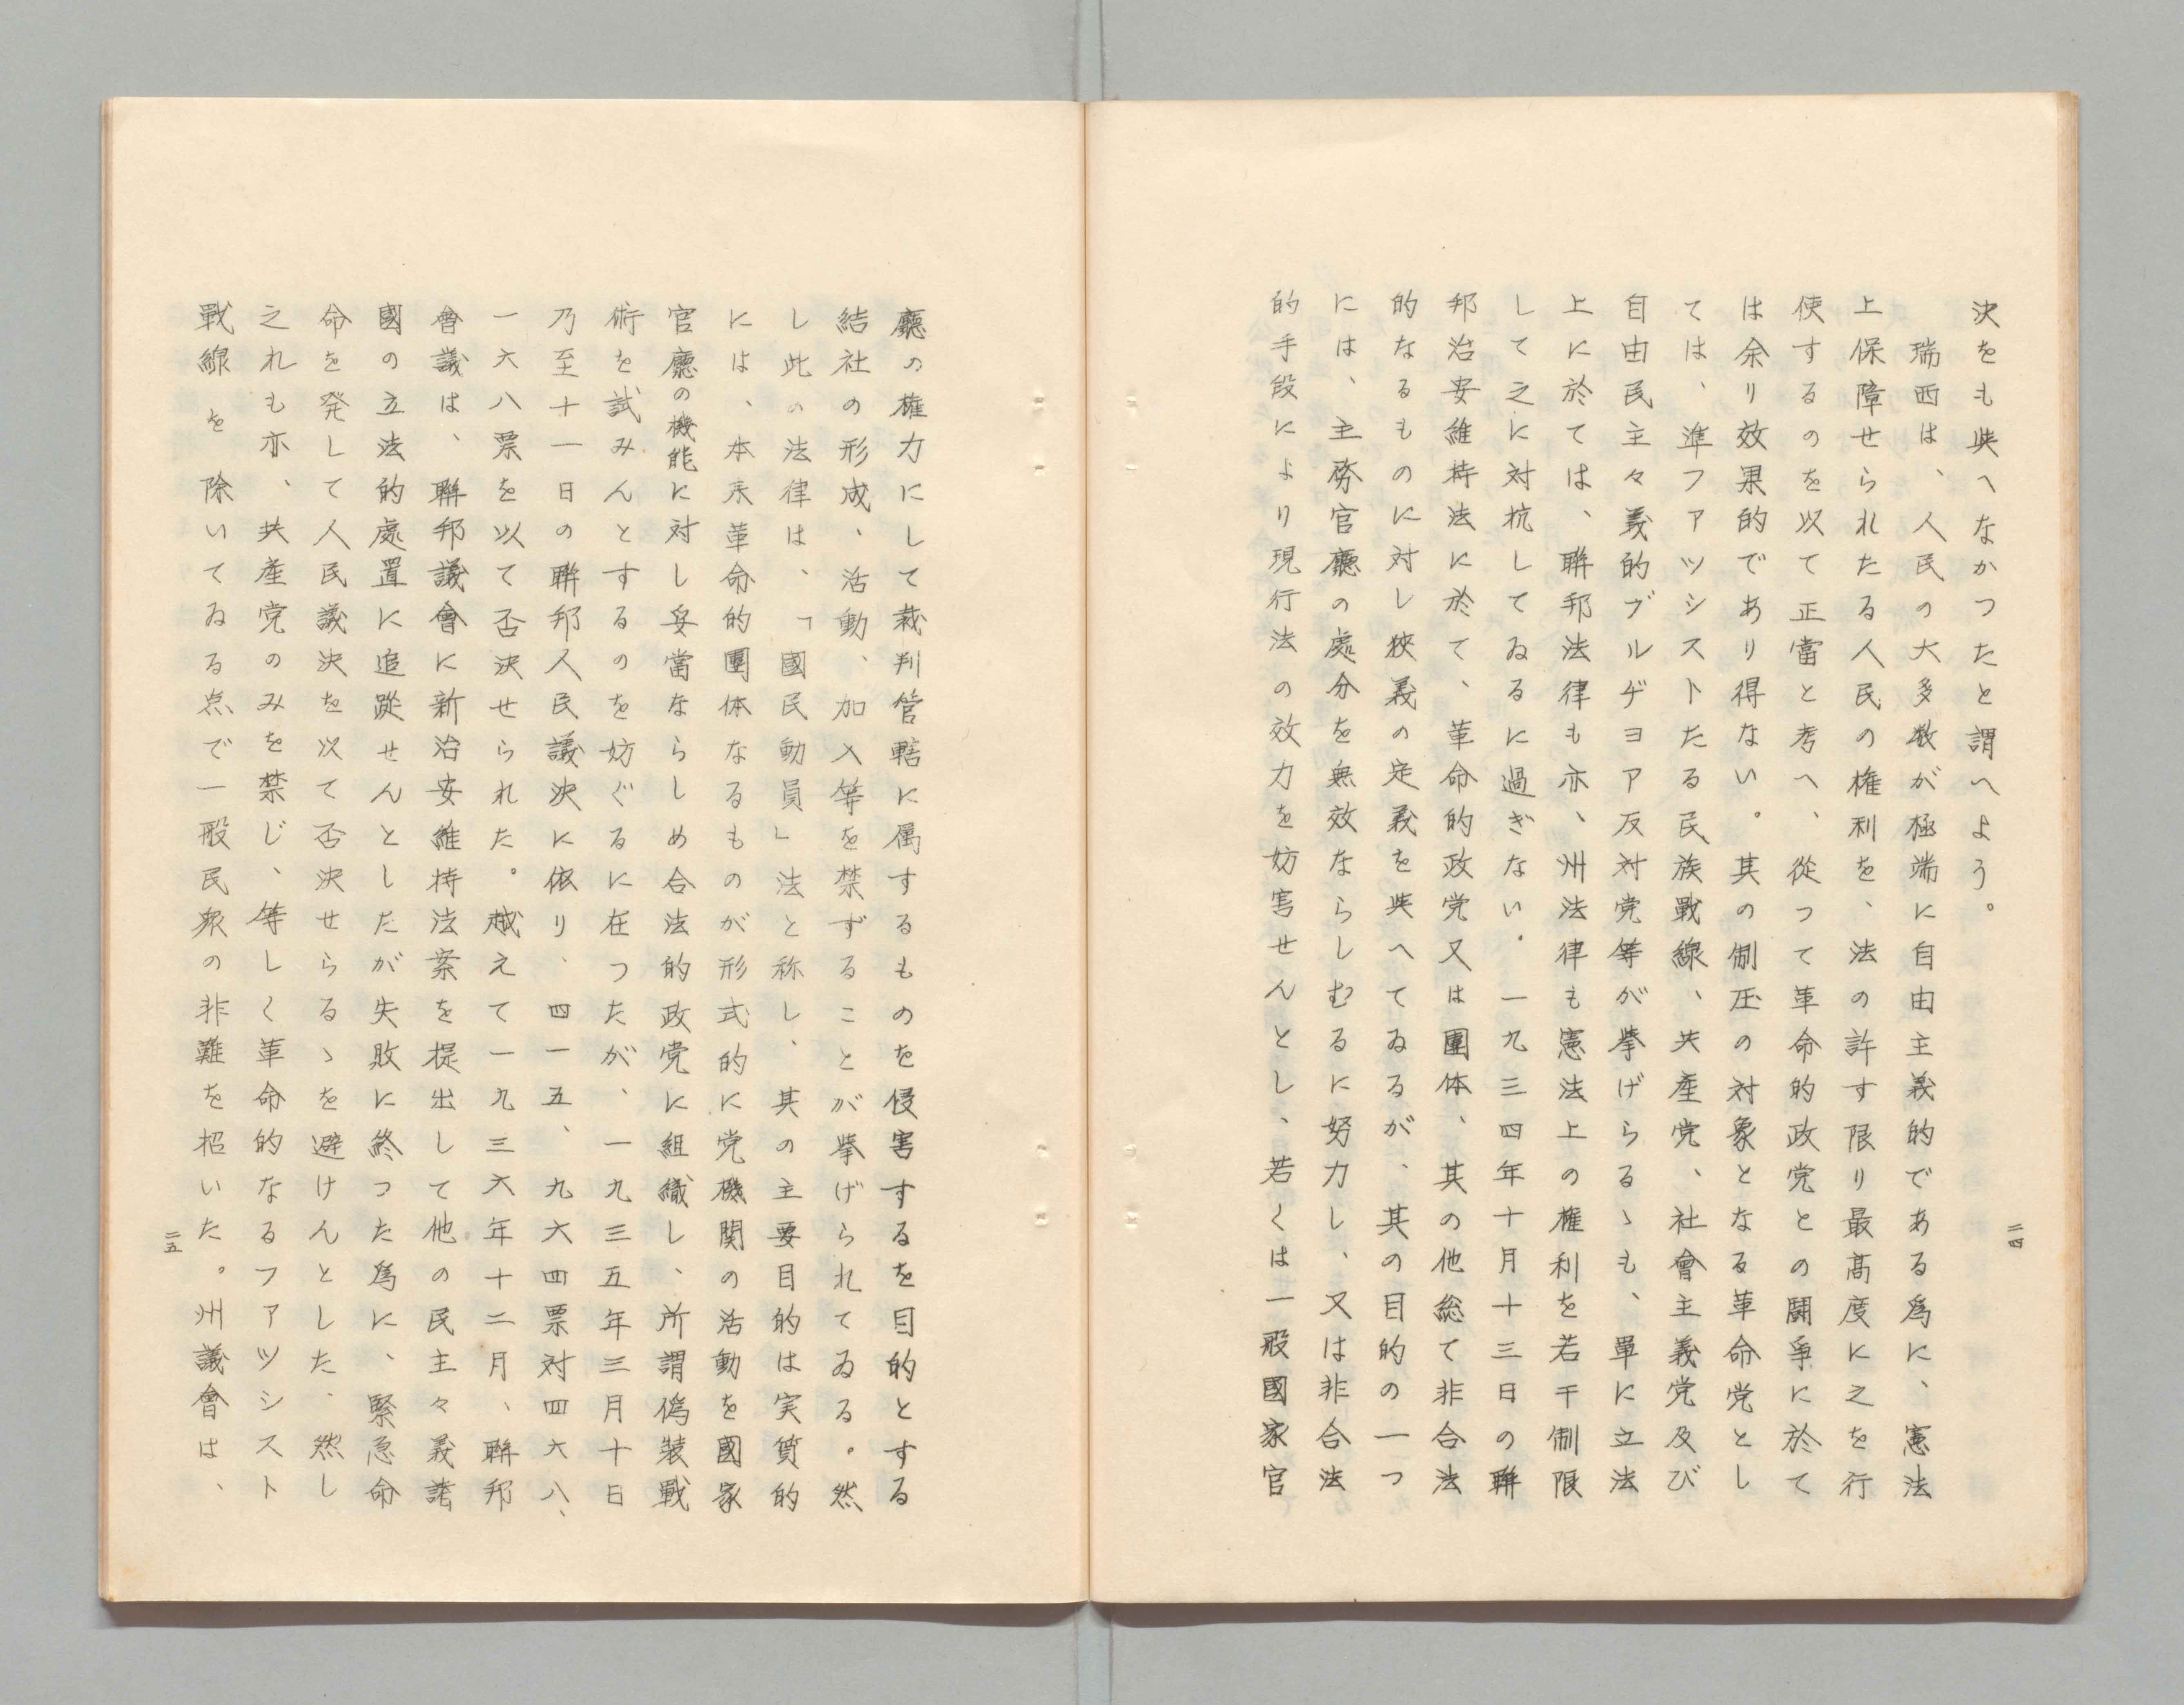 決をも與へなかつたと謂へよう。
瑞西は、人民の大多数が極端に自由主義的である爲に、憲法
上保障せられたる人民の権利を、法の許す限り最高度に之を行
使するのを以て正當と考へ、從つて革命的政党との鬪爭に於て
は余り效果的であり得ない。其の制圧の対象となる革命党とし
ては、準フアツシストたる民族戰線、共産党、社會主義党及び
自由民主々義的ブルヂヨア反対党等が挙げらるゝも、單に立法
上に於ては、聯邦法律も亦、州法律も憲法上の権利を若干制限
して之に対抗してゐるに過ぎない。一九三四年十月十三日の聯
邦治安維持法に於て、革命的政党又は團体、其の他総て非合法
的なるものに対し狹義の定義を與へてゐるが、其の目的の一つ
には、主務官廳の處分を無效ならしむるに努力し、又は非合法
的手段により現行法の效力を妨害せんとし、若くは一般國家官
二四
廳の権力にして裁判管轄に属するものを侵害するを目的とする
結社の形成、活動、加入等を禁ずることが挙げられてゐる。然
し此の法律は、「國民動員」法と称し、其の主要目的は実質的
には、本来革命的團体なるものが形式的に党機関の活動を國家
官廳の機能に対し妥當ならしめ合法的政党に組織し、所謂偽裝戰
術を試みんとするのを妨ぐるに在つたが、一九三五年三月十日
乃至十一日の聯邦人民議決に依り、四一五、九六四票対四六八、
一六八票を以て否決せられた。越えて一九三六年十二月、聯邦
會議は、聯邦議會に新治安維持法案を提出して他の民主々義諸
國の立法的處置に追蹤せんとしたが失敗に終つた爲に、緊急命
命を発して人民議決を以て否決せらるゝを避けんとした、然し
之れも亦、共産党のみを禁じ、等しく革命的なるフアツシスト
戰線を除いてゐる点で一般民衆の非難を招いた。州議會は、
二五